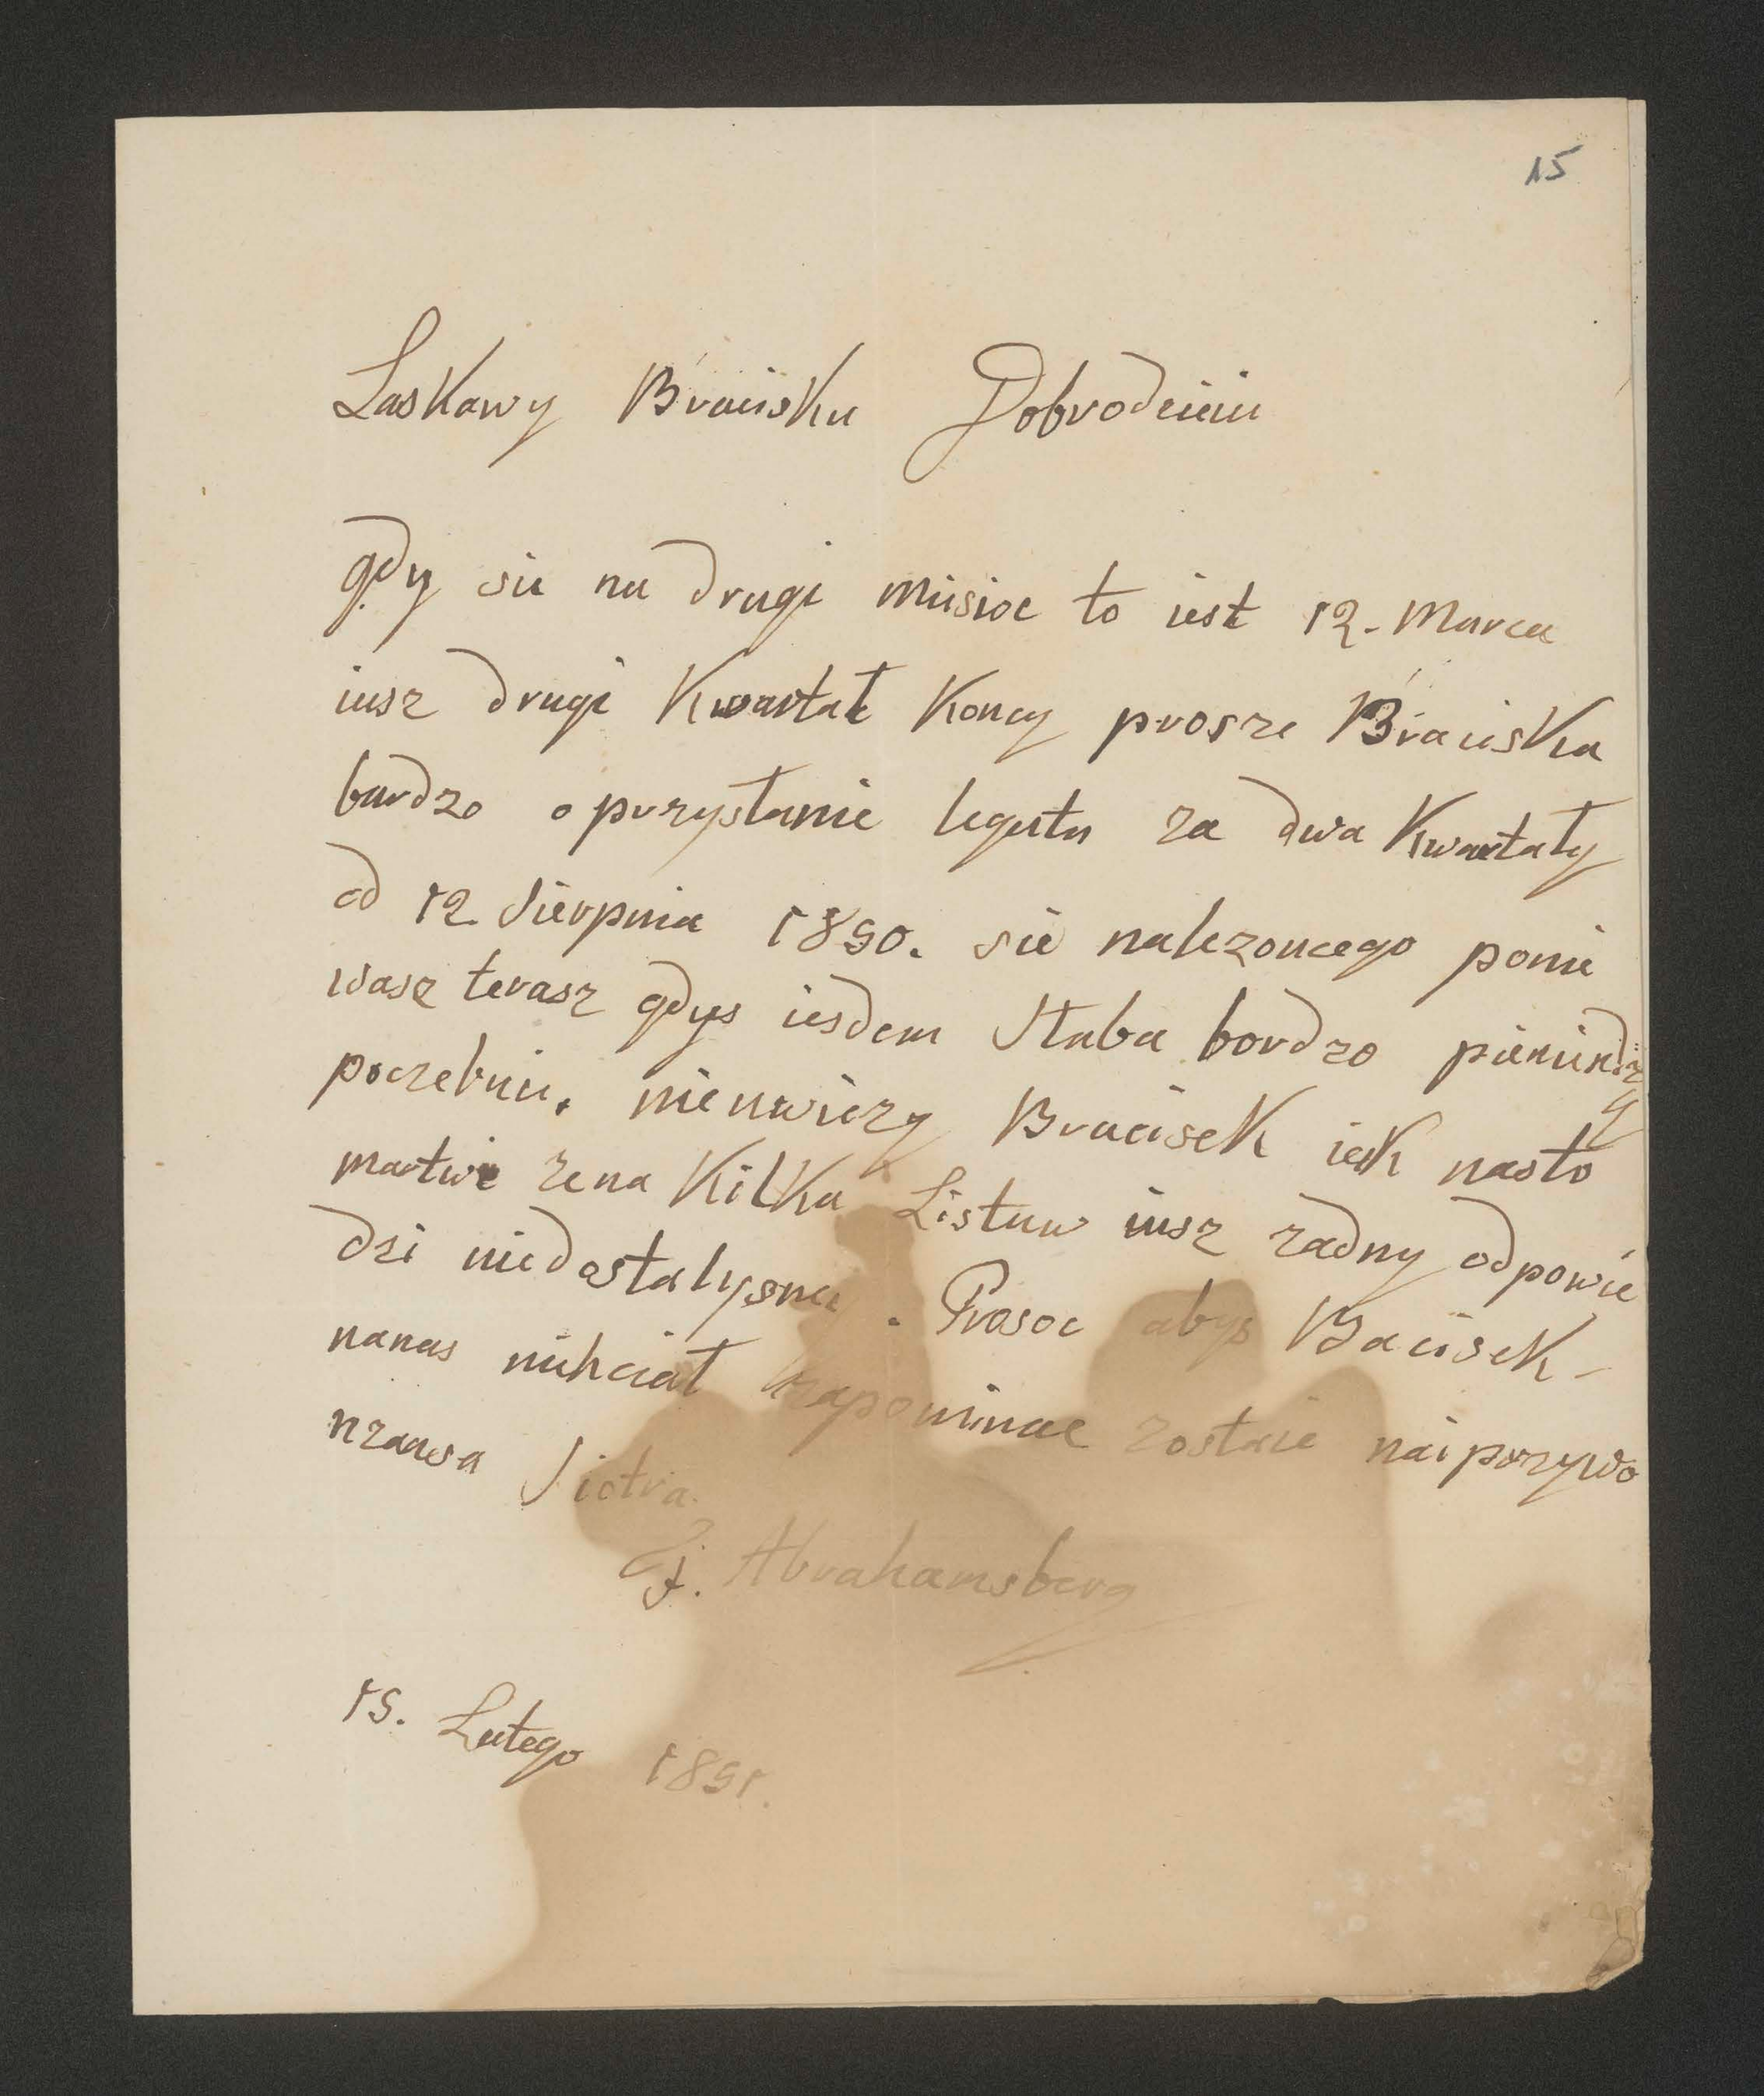 15
Laskawy Braciisku Dobrodeiciu
gdy sie na drugi miisioc to iest 12. Marca
iusz drugi Kwartał Koncy prosze Braciska
bardzo o przysłanie legatu za dwa Kwartały
od 12 Sierpnia 1890. sie nalezoncego ponie
wasz terasz gdys iesdem Słaba bordzo pieniindzy
poczebuie. nieuwiezy Braciseck iak nasto
martwi zena Kilka Listuw iusz zadny odpowie
dzi niedostalysmy. Prosoe abys Baciisek -
nanas niihciał zapominac zostaie naiprzywo
nzansa Siotra
J. Abrahamsberg
15. Lutego 1891.